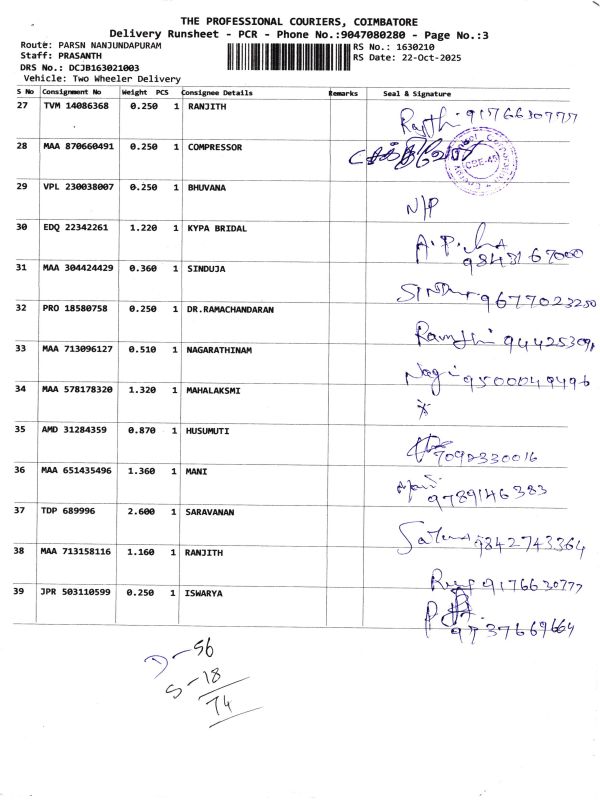 THE PROFESSIONAL COURIERS, COIMBATORE
Delivery Runsheet - PCR - Phone No.:9047080280 - Page No.:3
Route: PARSN NANJUNDAPURAM RS No.: 1630210
Staff: PRASANTH RS Date: 22-Oct-2025
DRS No.: DCJB163021003
Vehicle: Two Wheeler Delivery
S No Consignment No Weight PCS Consignee Details Remarks Seal & Signature
27 TVM 14086368 0.250 1 RANJITH
9176630777
28 MAA 870660491 0.250 1 COMPRESSOR
CBE-45
29 VPL 230038007 0.250 1 BHUVANA
N/P
30 EDQ 22342261 1.220 1 KYPA BRIDAL
9843167000
31 MAA 304424429 0.360 1 SINDUJA
9677023250
32 PRO 18580758 0.250 1 DR.RAMACHANDARAN
33 MAA 713096127 0.510 1 NAGARATHINAM
Nagi 9500049496
34 MAA 578178320 1.320 1 MAHALAKSMI
35 AMD 31284359 0.870 1 HUSUMUTI
7092330016
36 MAA 651435496 1.360 1 MANI
Mani 9789146383
37 TDP 689996 2.600 1 SARAVANAN
9842743364
38 MAA 713158116 1.160 1 RANJITH
9176630777
39 JPR 503110599 0.250 1 ISWARYA
9737669664
D-56
S-18
74